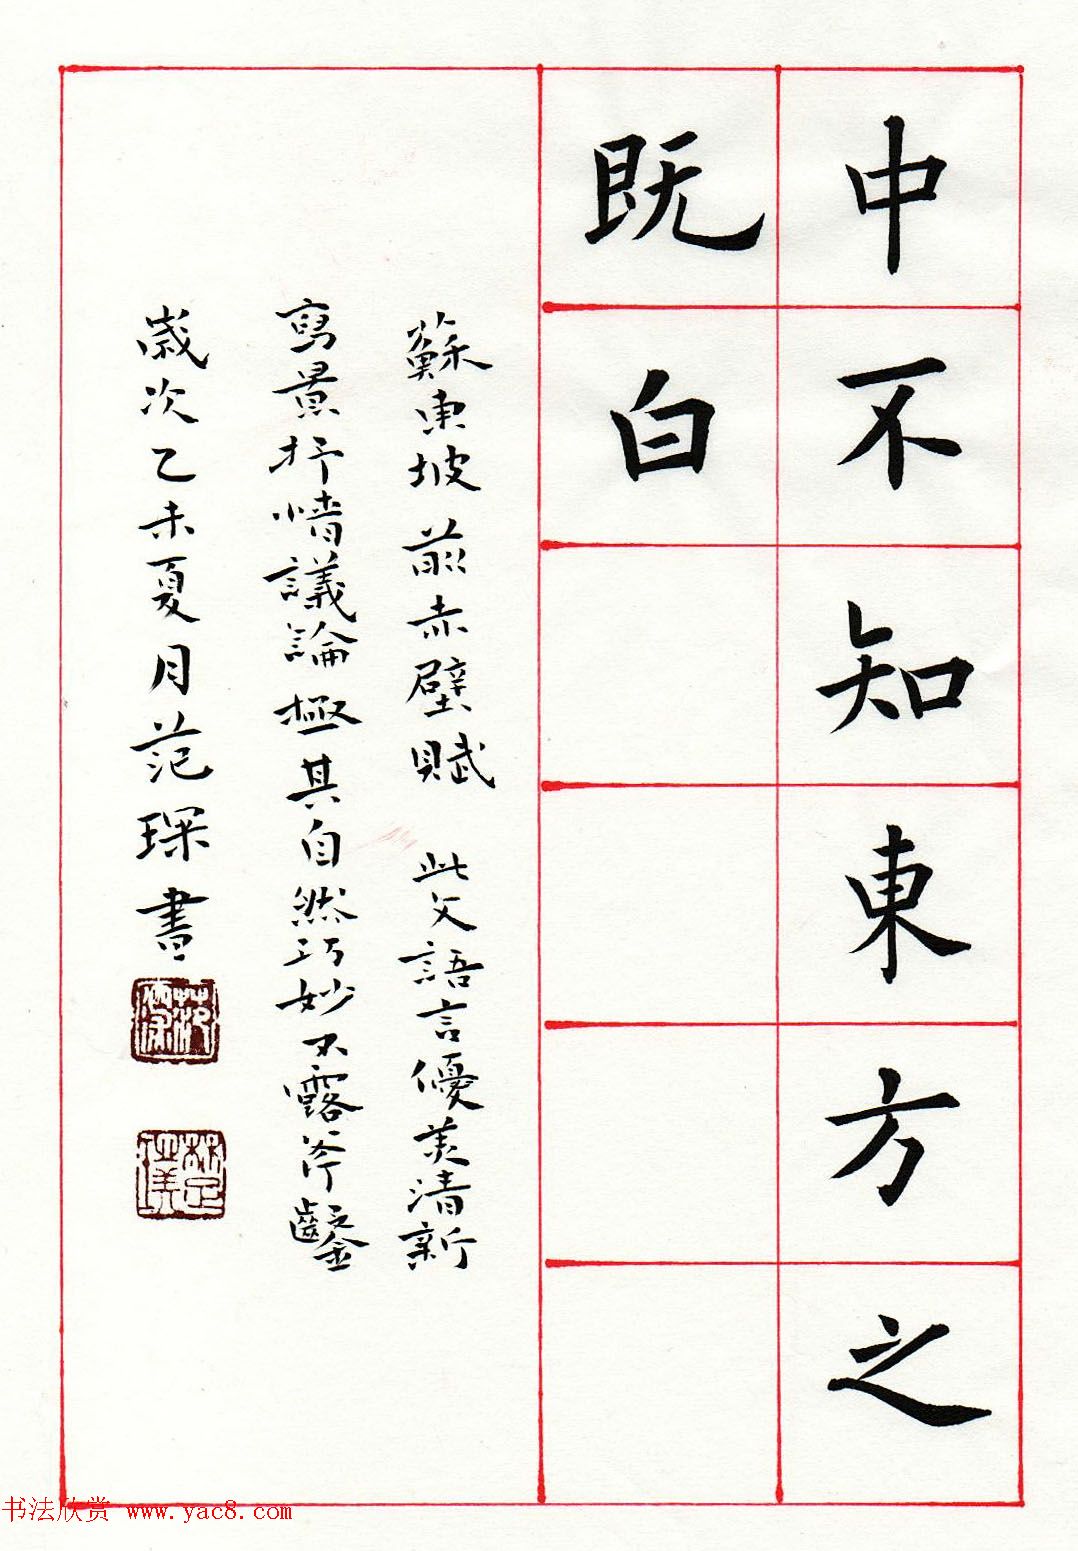 中不知東方之
既白
蘇東坡前赤壁賦 此文語言優美清新
寫景抒情議論極其自然巧妙不露斧鑿
歲次乙未夏月范琛書
书法欣赏 www.yac8.com